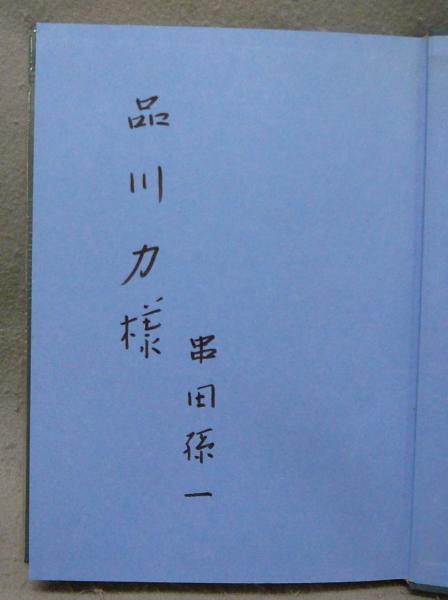 品川力様
串田孫一